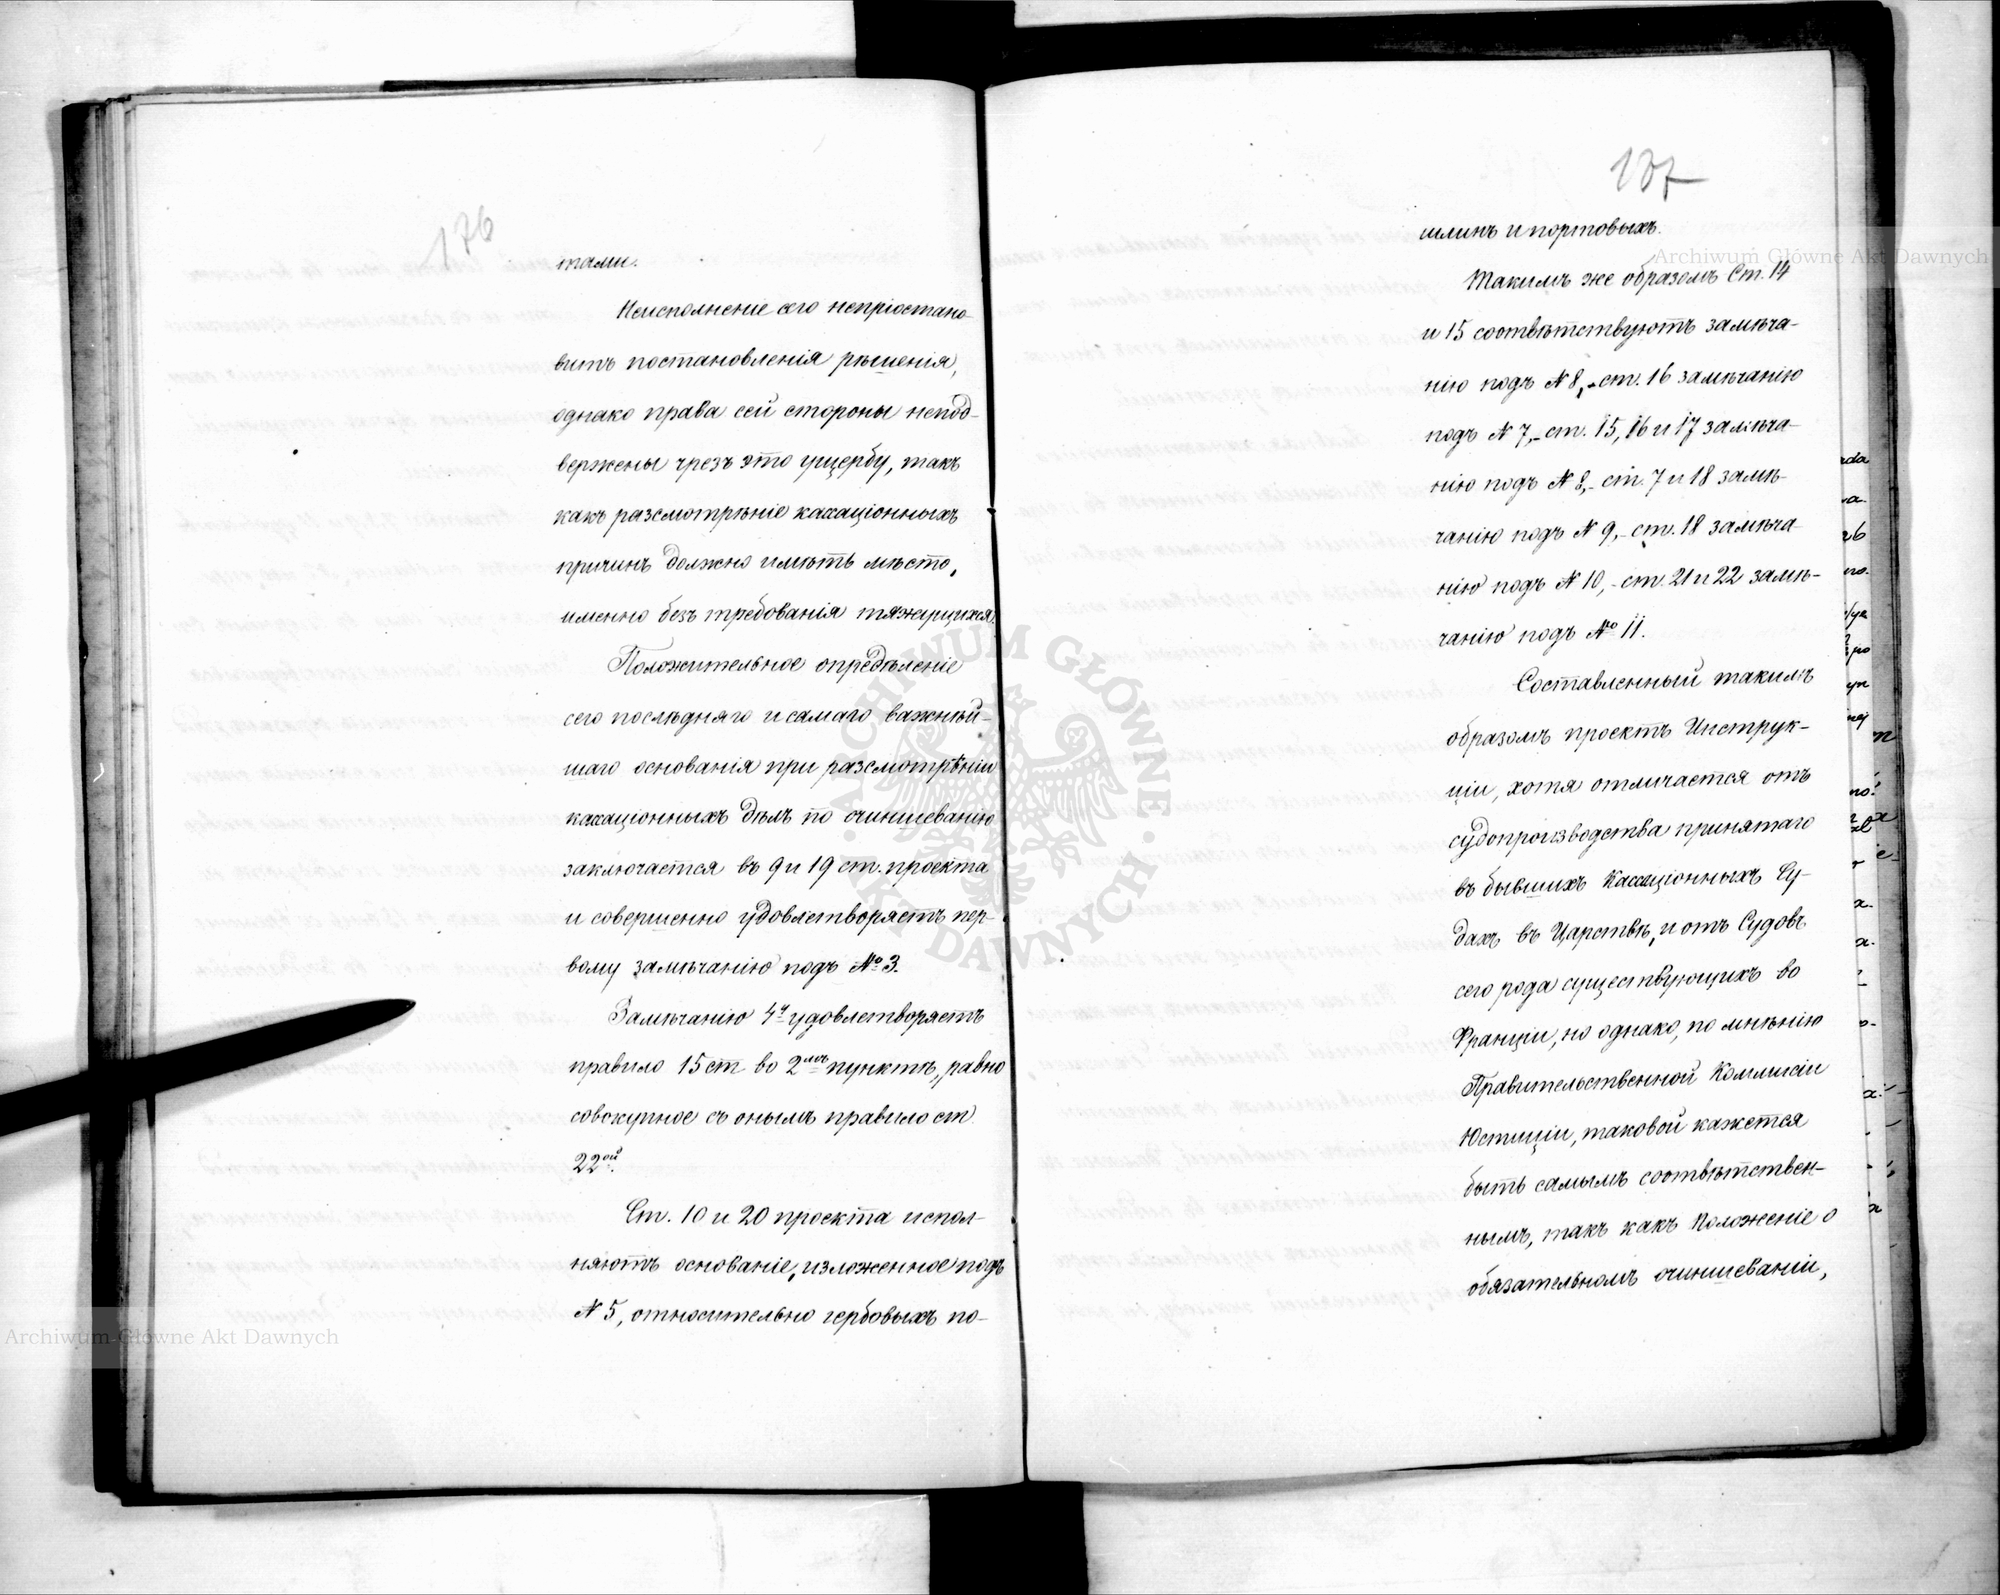 176
тами.
Неисполненіе сего непріостано-
витъ постановленія рѣшенія,
однако права сей стороны непод-
вержены чрезъ это ущербу, такъ
какъ разсмотрѣніе кассаціонныхъ
причинъ должно имѣть мѣсто,
именно безъ требованія тяжущихся.
Положительное опредѣленіе
сего послѣдняго и самаго важнѣй-
шаго основанія при разсмотрѣніи
кассаціонныхъ дѣлъ по очиншеванію
заключается въ 9 и 19 ст. проекта
и совершенно удовлетворяетъ пер-
вому замѣчанію подъ № 3.
Замѣчанію 4у удовлетворяетъ
правило 15 ст во 2мъ пунктѣ, равно
совокупное съ онымъ правило ст
22ой.
Ст. 10 и 20 проекта испол-
няютъ основаніе, изложенное подъ
N 5, относительно гербовыхъ по-
137
шлинъ и портовыхъ.
Такимъ же образомъ Ст. 14
и 15 соотвѣтствуютъ замѣча-
нію подъ N 8,- ст. 16 замѣчанію
подъ N 7,- ст. 15, 16 и 17 замѣча-
нію подъ N 8,- ст. 7 и 18 замѣ-
чанію подъ N 9,- ст. 18 замѣча-
нію подъ N 10,- ст. 21 и 22 замѣ-
чанію подъ № 11.
Составленный такимъ
образомъ проектъ Инструк-
ціи, хотя отличается отъ
судопроизводства принятаго
въ бывшихъ Кассаціонныхъ Су-
дахъ въ Царствѣ, и отъ Судовъ
сего рода существующихъ во
Франціи, но однако, по мнѣнію
Правительственной Коммисіи
Юстиціи, таковой кажется
быть самымъ соотвѣтствен-
нымъ, такъ какъ Положеніе о
обязательномъ очиншеваніи,
Archiwum Główne Akt Dawnych
Archiwum Główne Akt Dawnych
ARCHIWUM GŁÓWNE AKT DAWNYCH